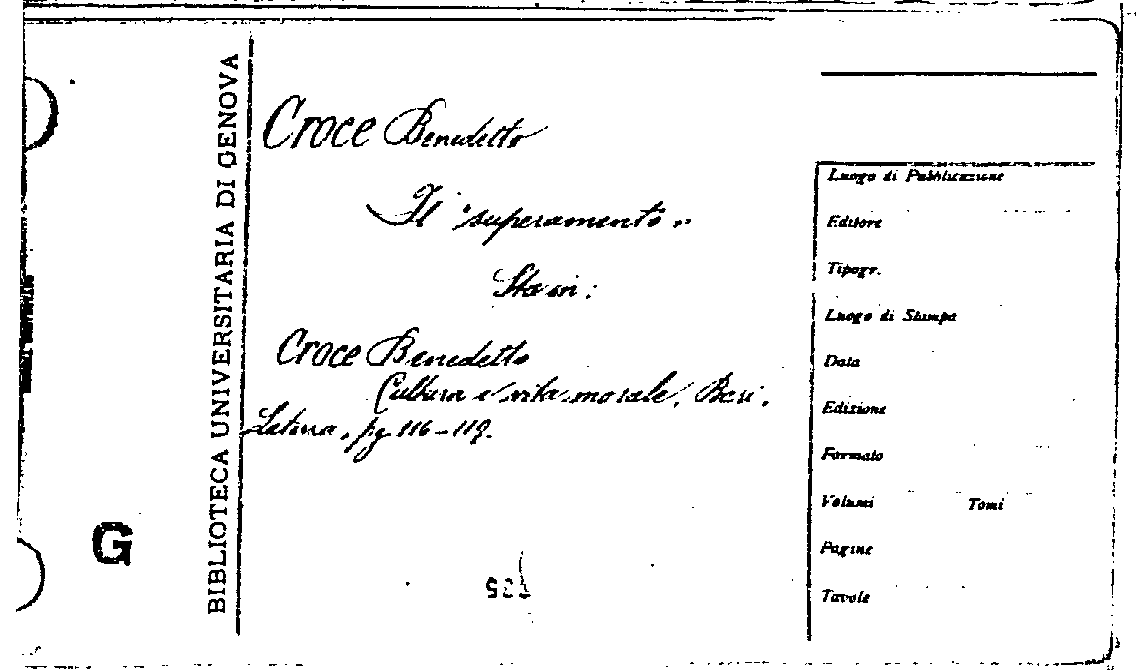 BIBLIOTECA UNIVERSITARIA DI GENOVA
G
Croce Benedetto
Il "superamento"
Sta in:
Croce Benedetto
Cultura e vita morale, Bari,
Laterza, pg 116-119.
Luogo di Pubblicazione
Editore
Tipogr.
Luogo di Stampa
Data
Edizione
Formato
Volumi Tomi
Pagine
Tavole